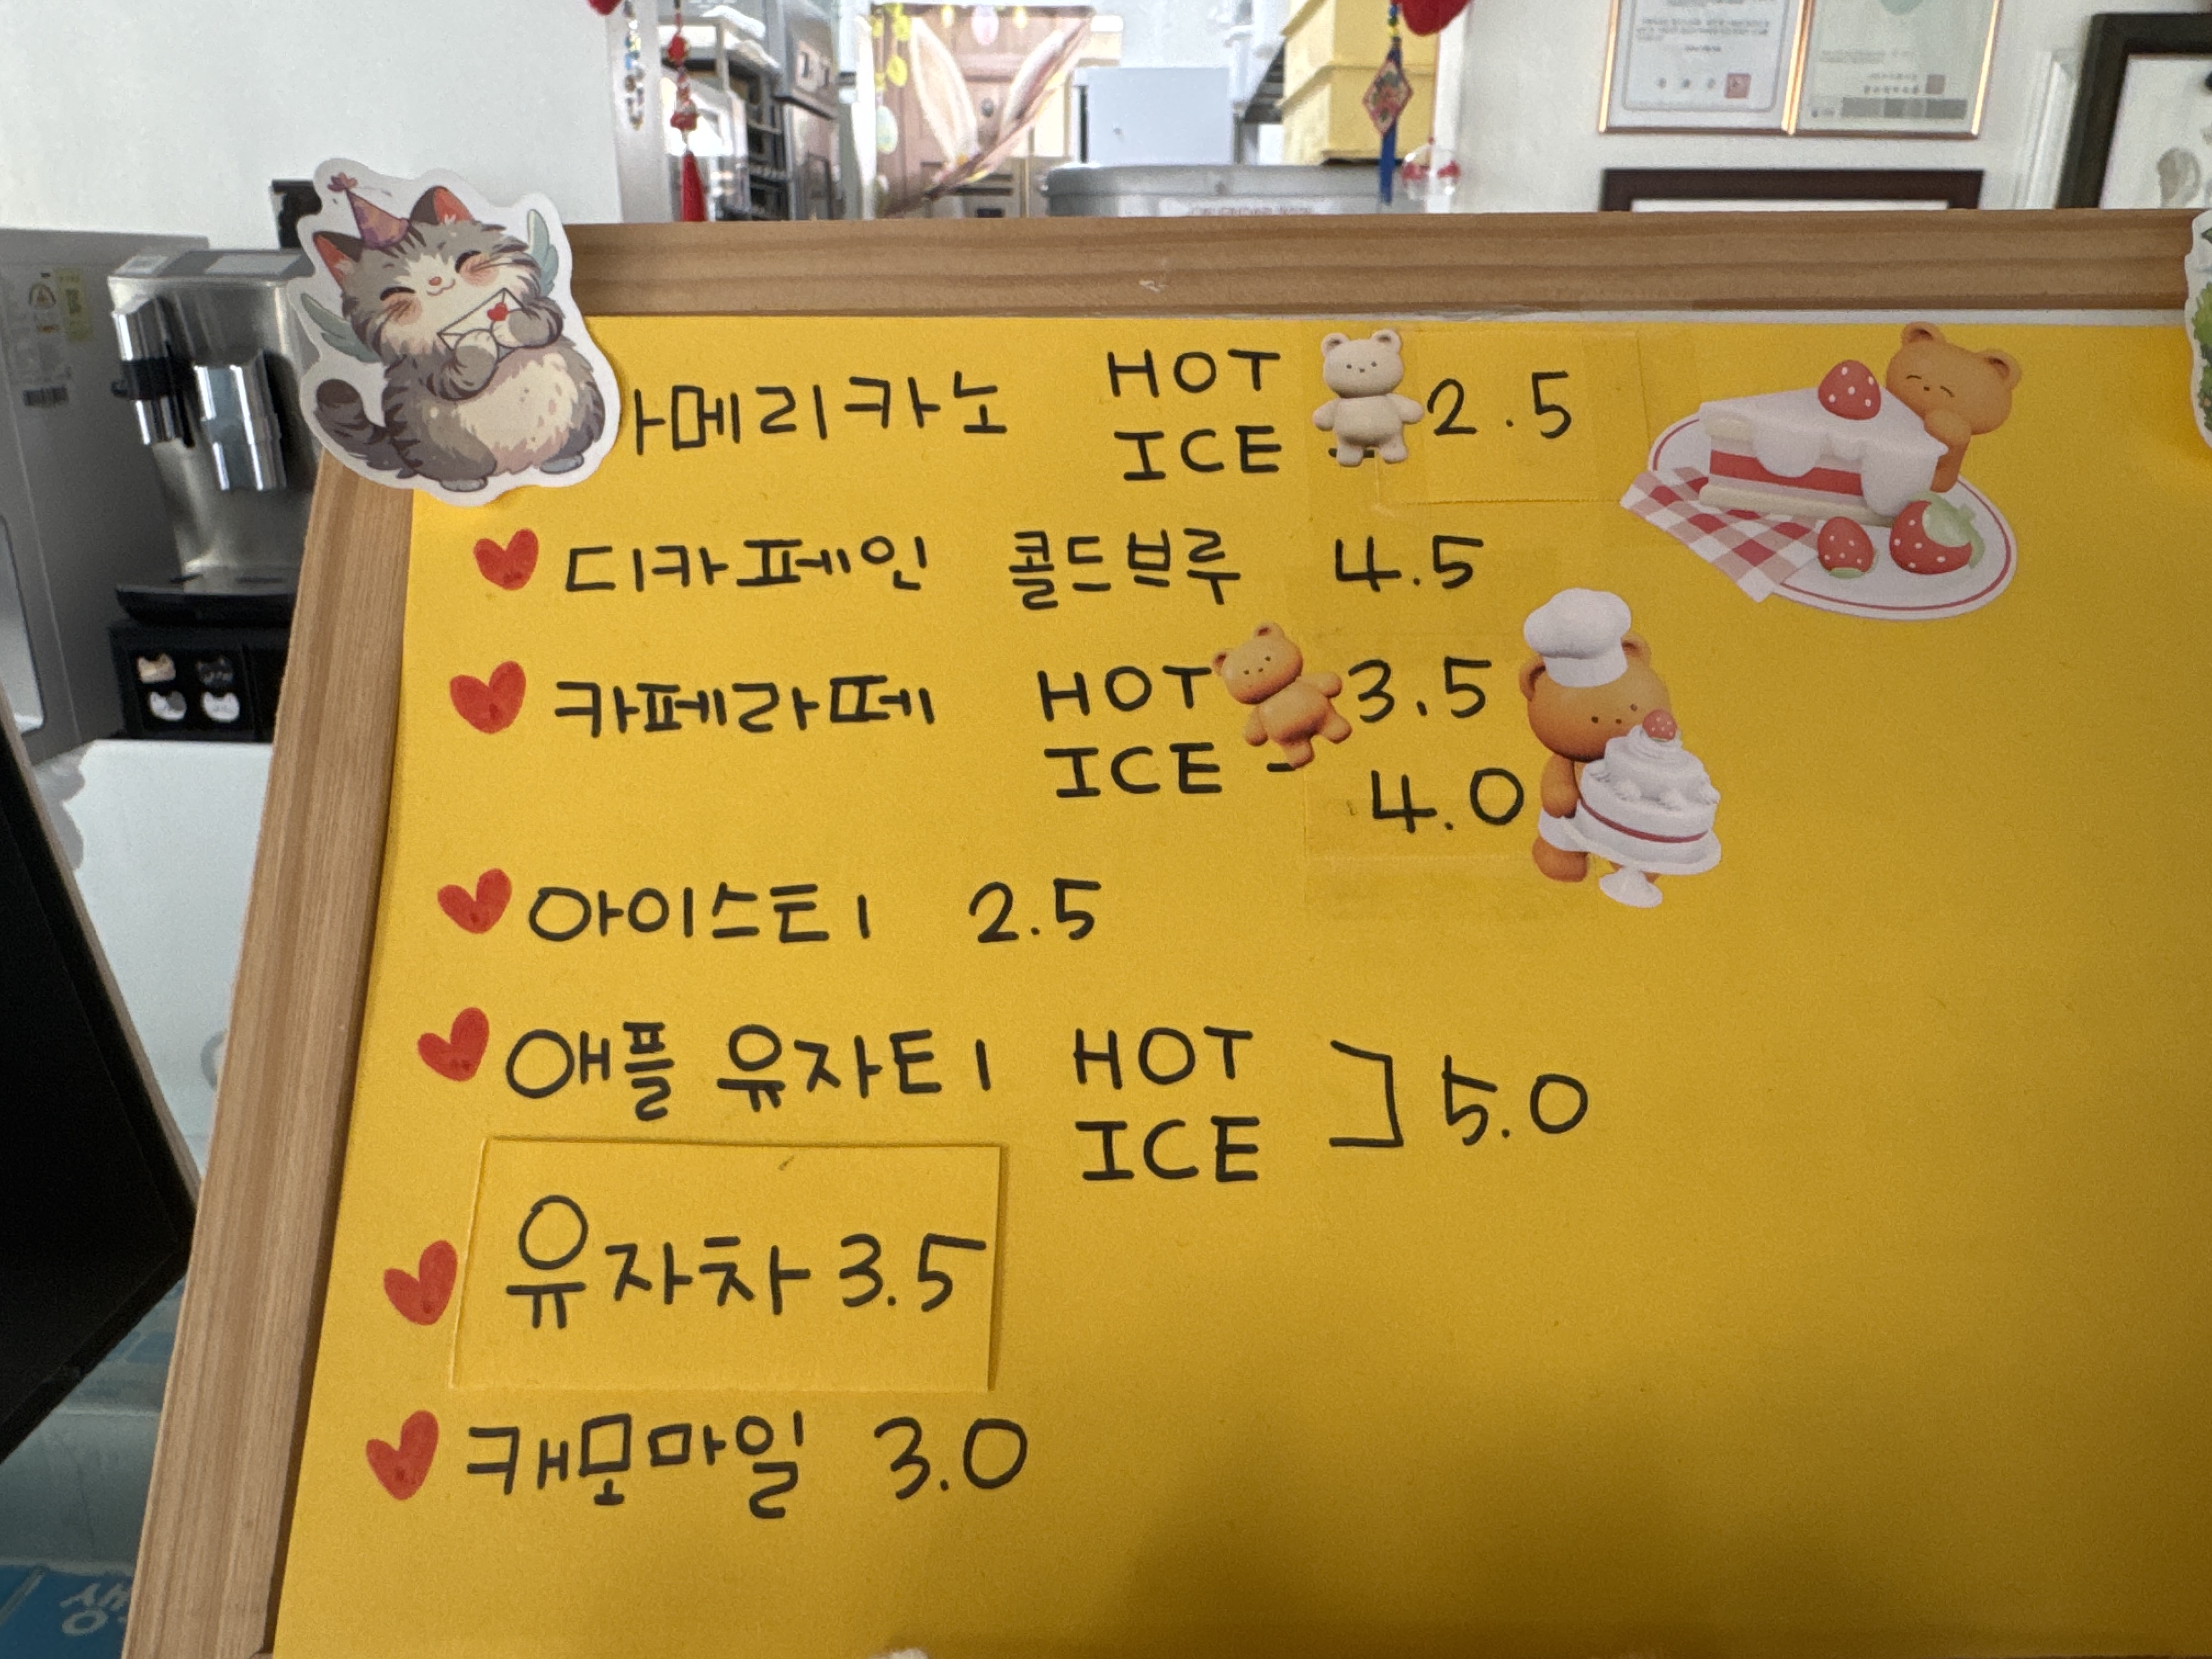 아메리카노 HOT 2.5
ICE
디카페인 콜드브루 4.5
카페라떼 HOT 3.5
ICE - 4.0
아이스티 2.5
애플 유자티 HOT
ICE ] 5.0
유자차 3.5
캐모마일 3.0